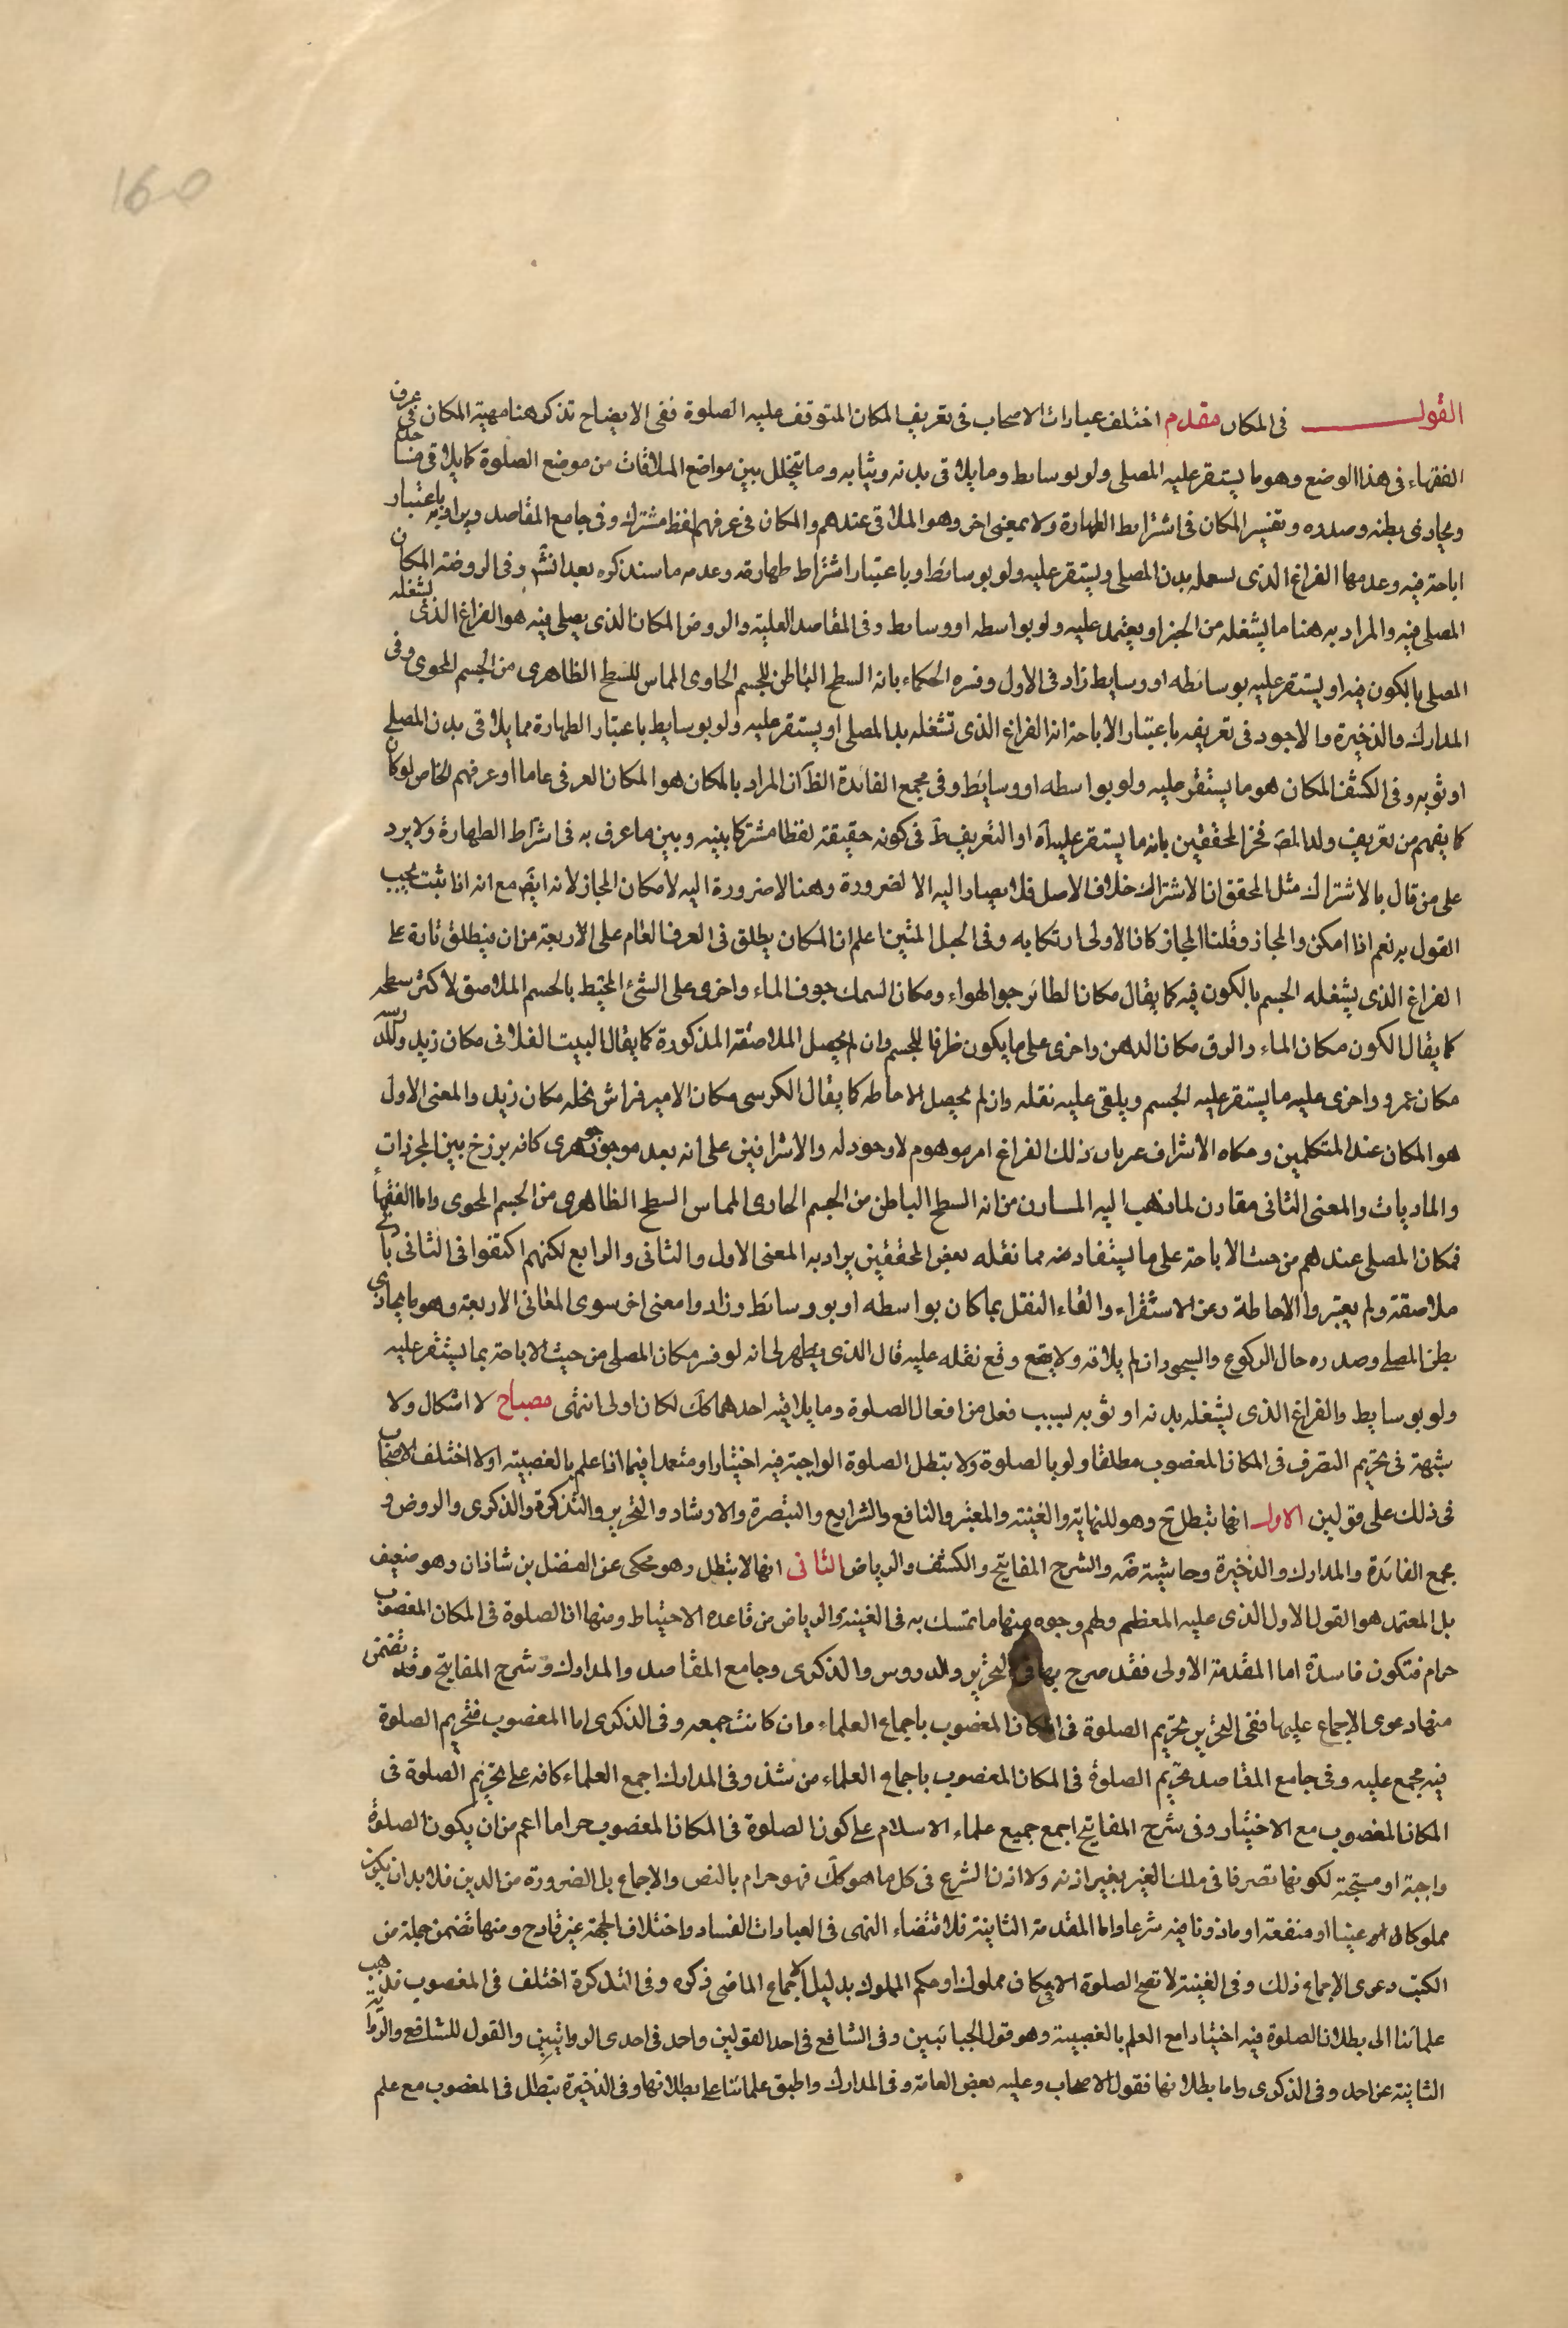 160
القول في المكان مقدم اختلف عبارات الاصحاب فى تعريف المكان المتوقف عليه الصلوة ففى الايضاح تذكر هنا مهية المكان فى عرف
الفقهاء فى هذا الوضع وهو ما يستقر عليه المصلى ولو بوسايط وما يلاقى بدنه وثيابه وما يتخلل بين مواضع الملاقات من موضع الصلوة كما يلاقى مساجده
ويحاذى بطنه وصدره وتفسير المكان فى اشتراط الطهارة ولا بمعنى اخر وهو الملاقى عندهم والمكان فى عرفهم لفظ مشترك وفى جامع المقاصد ويراد به باعتبار
اباحته فيه وعدمها الفراغ الذى يشغله بدن المصلى ويستقر عليه ولو بوسائط وباعتبار اشتراط طهارته وعدمه ما سنذكره بعد انش وفى الروضة المكان
المصلى فيه والمراد به هنا ما يشغله من الحيز او يعتمد عليه ولو بواسطه او وسايط وفى المقاصد العلية والروض المكان الذى يصلى فيه هو الفراغ الذى يشغله
المصلى بالكون فيه او يستقر عليه بوسائطه او وسايط زاد فى الاول وفسره الحكماء بانه السطح الباطن للجسم الحاوى المماس للسطح الظاهرى من الجسم المحوى وفى
المدارك والذخيرة والاجود فى تعريفه باعتبار الاباحة انه الفراغ الذى تشغله بدن المصلى او يستقر عليه ولو بوسايط باعتبار الطهارة مما يلاقى بدن المصلى
او ثوبه وفى الكشف المكان هو ما يستقر عليه ولو بواسطه او وسايط وفى مجمع الفائدة الظ ان المراد بالمكان هو المكان العرفى عاما او عرفهم الخاص لو كان
كما يفهم من تعريف ولد المص فخر المحققين بانه ما يستقر عليه آه او التعريف ظ فى كونه حقيقة لفظا مشتركا بينه وبين ما عرف به فى اشتراط الطهارة ولا يرد
على من قال بالاشتراك مثل المحقق ان الاشتراك خلاف الاصل فلا يصار اليه الا لضرورة وهنا لا ضرورة اليه لامكان المجاز لانه ايض مع انه اذا ثبت يجب
القول به نعم اذا امكن والمجاز وقلنا المجاز كان الاولى ارتكابه وفى الحبل المتين اعلم ان المكان يطلق فى العرف العام على الاربعة من ان ينطلق تارة على
الفراغ الذى يشغله الجسم بالكون فيه كما يقال مكان الطائر جو الهواء ومكان السمك جوف الماء واخرى على الشئ المحيط بالجسم الملاصق لاكثر سطحه
كما يقال الكون مكان الماء والزق مكان الدهن واخرى على ما يكون ظرفا للجسم وان لم يحصل الملاصقة المذكورة كما يقال البيت الفلانى مكان زيد والمدرسه
مكان عمرو واخرى عليه ما يستقر عليه الجسم ويلقى عليه نقله وان لم يحصل الاحاطه كما يقال الكرسى مكان الامير فراش نخله مكان زيد والمعنى الاول
هو المكان عند المتكلمين وحكاه الاشراف عربان ذلك الفراغ امر موهوم لا وجود له والاشراقيين على انه بعد موجود جوهرى كانه برزخ بين المجردات
والماديات والمعنى الثانى مقارن لما ذهب اليه المساون من انه السطح الباطن من الجسم الحاوى المماس السطح الظاهرى من الجسم المحوى واما الفقهاء
فمكان المصلى عندهم من حيث الاباحة على ما يستفاد منه مما نقله بعض المحققين يراد به المعنى الاول والثانى والرابع لكنهم اكتفوا فى الثانى باى
ملاصقة ولم يعتبروا الاحاطة وعن الاستقراء والغاء النقل بما كان بواسطه او بوسائط وزادوا معنى اخر سوى المعانى الاربعة وهو ما يحاذى
بطن المصلى وصدره حال الركوع والسجود ان لم يلاقه ولا يقع وقع نقله عليه قال الذى يظهر لى انه لو فسر مكان المصلى من حيث الاباحة بما يستقر عليه
ولو بوسايط والفراغ الذى يشغله بدنه او ثوبه بسبب فعل من افعال الصلوة وما يلاقيه احدهما كك لكان اولى انتهى مصباح لا اشكال ولا
شبهة فى تحريم التصرف فى المكان المغصوب مطلقا ولو بالصلوة ولا تبطل الصلوة الواجبة فيه اختيارا ومتعمدا فيما اذا علم بالغصبية اولا اختلف الاصحاب
فى ذلك على قولين الاول انها تبطل تح وهو للنهاية والغنية والمعتبر والنافع والشرايع والتبصرة والارشاد والتحرير والتذكرة والذكرى والروض و
مجمع الفائدة والمدارك والذخيرة وحاشيته ضه والشرح المفاتيح والكشف والرياض الثانى انها لا تبطل وهو محكى عن الفضل بن شاذان وهو ضعيف
بل المعتمد هو القول الاول الذى عليه المعظم ولهم وجوه منها ما تمسك به فى الغنية والرياض من قاعده الاحتياط ومنها ان الصلوة فى المكان المغصوب
حرام فتكون فاسدة اما المقدمة الاولى فقد صرح بها فى التحرير والدروس والذكرى وجامع المقاصد والمدارك وشرح المفاتيح وقد تضمن
منها دعوى الاجماع عليها ففى التحرير تحريم الصلوة فى المكان المغصوب باجماع العلماء وان كانت جمعه وفى الذكرى اما المغصوب فتحريم الصلوة
فيه مجمع عليه وفى جامع المقاصد تحريم الصلوة فى المكان المغصوب باجماع العلماء من شذ وفى المدارك اجمع العلماء كافه على تحريم الصلوة فى
المكان المغصوب مع الاختيار وفى شرح المفاتيح اجمع جميع علماء الاسلام على كون الصلوة فى المكان المغصوب حراما اعم من ان يكون الصلوة
واجبة او مستحبة لكونها تصرفا فى ملك الغير بغير اذنه ولا اذن الشرع فى كل ما هو كك فهو حرام بالنص والاجماع بل الضرورة من الدين فلا بد ان يكون
مملوكا له عينا او منفعة او ماذونا فيه شرعا واما المقدمة الثانية فلاقتضاء النهى فى العبادات الفساد واختلاف الجهة غير قادح ومنها تضمن جملة من
الكتب دعوى الاجماع ذلك وفى الغنية لا تصح الصلوة الا فى مكان مملوك او حكم المملوك بدليل الاجماع الماضى ذكره وفى التذكرة اختلف فى المغصوب فذهب
علمائنا الى بطلان الصلوة فيه اختيارا مع العلم بالغصبية وهو قول الجبائيين وفى الشافع فى احد القولين واحد فى احدى الروايتين والقول للشافع والرواية
الثانية عن احد وفى الذكرى واما بطلانها فقول الاصحاب وعليه بعض العامة وفى المدارك واطبق علمائنا على بطلانها وفى الذخيرة يبطل فى المغصوب مع علم